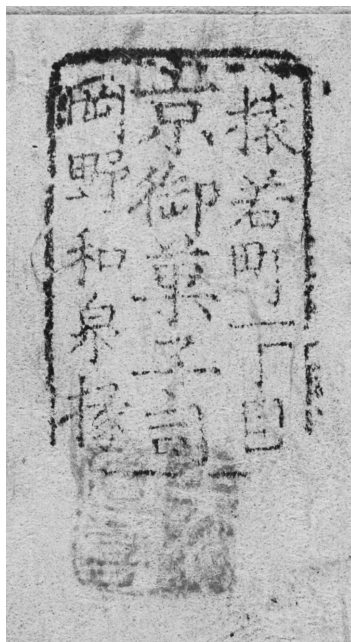 猿若町一丁目
京御菓子司
岡野和泉掾